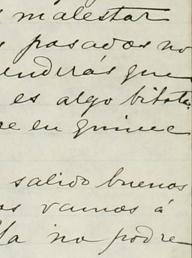 malestar
pasados no
endrás que
es algo
re en
salido buenos
os vamos á
lla no podre